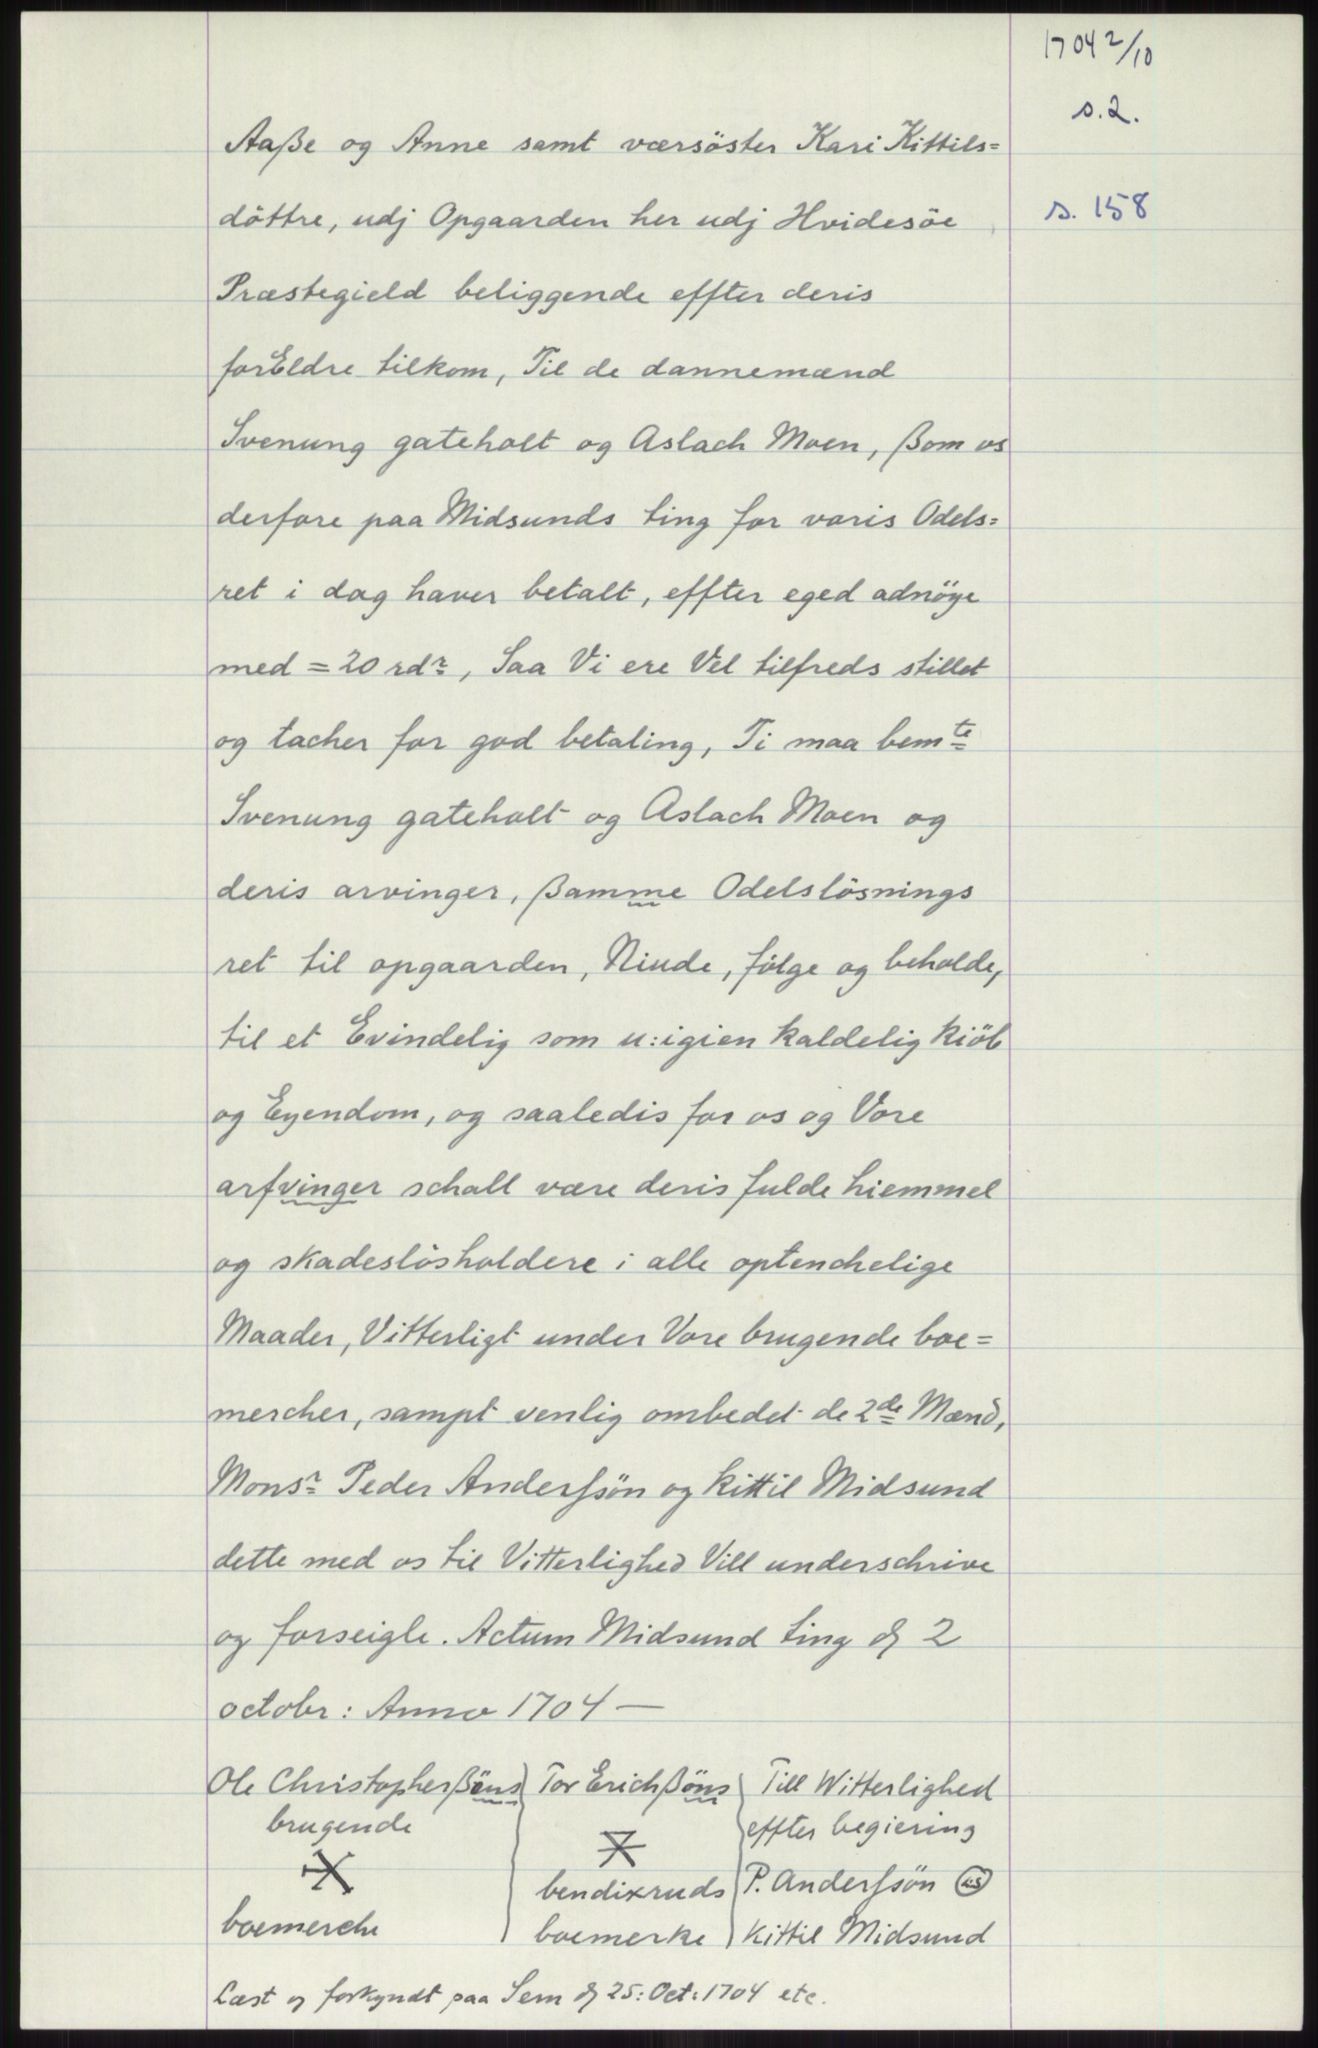 1704 2/10
s. 2.
s. 158
Aaße og Anne samt værsöster Kari Kittils=
döttre, udj Opgaarden her udj Hvidesöe
Præstegield beliggende effter deris
forEldre tilkom, Til de dannemænd
Svenung gateholt og Aslach Moen, ßom os
derfore paa Midsunds ting for voris Odels=
ret i dag haver betalt, effter eged adnöye
med = 20 rdr, Saa Vi ere Vel tilfreds stillet
og tacher for god betaling, Ti maa bemte
Svenung gateholt og Aslach Moen og
deris arvinger, ßamme Odelslösnings
ret til opgaarden, Niude, fölge og beholde,
til et Evindelig som u:igien kaldelig kiöb
og Eyendom, og saaledis for os og Vore
arfvinger schall være deris fulde hiemmel
og skadeslösholdere i alle optenchelige
Maader, Vitterligt under Vore brugende boe=
mercher, sampt venlig ombedet de 2de Mænd,
Monsr Peder Anderssön og Kittil Midsund
dette med os til Vitterlighed Vill underschrive
og forseigle. Actum Midsund ting d 2
octobr: Anno 1704 —
Ole Christopherßöns } Tor Erichßöns } Till Witterlighed
brugende effter begiering
bendixruds P. Anderssön LS
boemerche boemerke Kittil Midsund
Læst og forkyndt paa Sem d 25: Oct: 1704 etc.